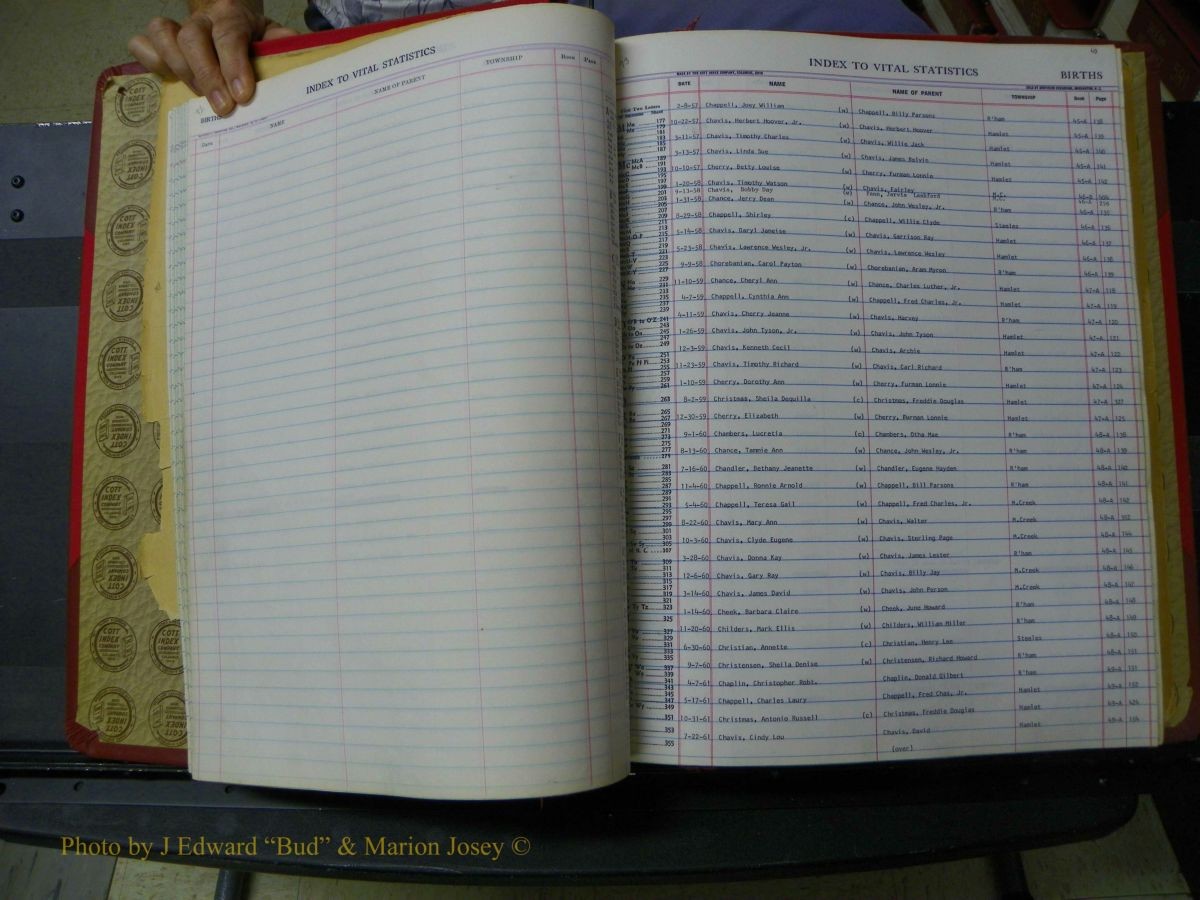 INDEX TO VITAL STATISTICS
NAME
NAME OF PARENT
TOWNSHIP
Book Page
Date
COTT INDEX COMPANY
INDEX TO VITAL STATISTICS BIRTHS
DATE NAME NAME OF PARENT TOWNSHIP Book Page
2-8-57 Chappell, Joey William (w) Chappell, Billy Parsons R'ham 45-A 138
10-22-57 Chavis, Herbert Hoover, Jr. (w) Chavis, Herbert Hoover Hamlet 45-A 139
3-11-57 Chavis, Timothy Charles (w) Chavis, Willie Jack Hamlet 45-A 140
3-13-57 Chavis, Linda Sue (w) Chavis, James Belvin Hamlet 45-A 141
10-10-57 Cherry, Betty Louise (w) Cherry, Furman Lonnie Hamlet 45-A 142
1-20-58 Chavis, Timothy Watson (w) Chavis, Fairley M.C.
9-13-58 Chavis, Bobby Day (w)
1-31-58 Chance, Jerry Dean (w) Chance, John Wesley, Jr. R'ham 46-A 135
8-29-58 Chappell, Shirley (c) Chappell, Willie Clyde Steeles 46-A 136
5-14-58 Chavis, Daryl Janeise (w) Chavis, Garrison Ray Hamlet 46-A 137
5-23-58 Chavis, Lawrence Wesley, Jr. (w) Chavis, Lawrence Wesley Hamlet 46-A 138
9-9-58 Chorebanian, Carol Payton (w) Chorebanian, Aram Myron R'ham 46-A 139
11-10-59 Chance, Cheryl Ann (w) Chance, Charles Luther, Jr. Hamlet 47-A 118
4-7-59 Chappell, Cynthia Ann (w) Chappell, Fred Charles, Jr. Hamlet 47-A 119
4-11-59 Chavis, Cherry Jeanne (w) Chavis, Harvey R'ham 47-A 120
1-26-59 Chavis, John Tyson, Jr. (w) Chavis, John Tyson Hamlet 47-A 121
12-3-59 Chavis, Kenneth Cecil (w) Chavis, Archie Hamlet 47-A 122
11-23-59 Chavis, Timothy Richard (w) Chavis, Carl Richard R'ham 47-A 123
1-10-59 Cherry, Dorothy Ann (w) Cherry, Furman Lonnie Hamlet 47-A 124
8-2-59 Christmas, Sheila Dequilla (c) Christmas, Freddie Douglas Hamlet 47-A 327
12-30-59 Cherry, Elizabeth (w) Cherry, Burman Lonnie Hamlet 47-A 125
9-1-60 Chambers, Lucretia (c) Chambers, Otha Mae R'ham 48-A 138
8-13-60 Chance, Tammie Ann (w) Chance, John Wesley, Jr. R'ham 48-A 139
7-16-60 Chandler, Bethany Jeanette (w) Chandler, Eugene Hayden R'ham 48-A 140
11-4-60 Chappell, Ronnie Arnold (w) Chappell, Bill Parsons R'ham 48-A 141
5-4-60 Chappell, Teresa Gail (w) Chappell, Fred Charles, Jr. M.Creek 48-A 142
8-22-60 Chavis, Mary Ann (w) Chavis, Walter M.Creek 48-A
10-3-60 Chavis, Clyde Eugene (w) Chavis, Sterling Page M.Creek 48-A 144
3-28-60 Chavis, Donna Kay (w) Chavis, James Lester R'ham 48-A 145
12-6-60 Chavis, Gary Ray (w) Chavis, Billy Jay M.Creek 48-A 146
3-14-60 Chavis, James David (w) Chavis, John Person M.Creek 48-A 147
1-14-60 Cheek, Barbara Claire (w) Cheek, June Howard R'ham 48-A 148
11-20-60 Childers, Mark Ellis (w) Childers, William Miller R'ham 48-A 149
6-30-60 Christian, Annette (c) Christian, Henry Lee Steeles 48-A 150
9-7-60 Christensen, Sheila Denise (w) Christensen, Richard Howard R'ham 48-A 151
4-7-61 Chaplin, Christopher Robt. Chaplin, Donald Gilbert R'ham 49-A 131
5-17-61 Chappell, Charles Laury Chappell, Fred Chas, Jr. Hamlet 49-A 132
10-31-61 Christmas, Antonio Russell (c) Christmas, Freddie Douglas Hamlet 49-A 424
7-22-61 Chavis, Cindy Lou Chavis, David Hamlet 49-A 134
(over)
Photo by J Edward “Bud” & Marion Josey ©